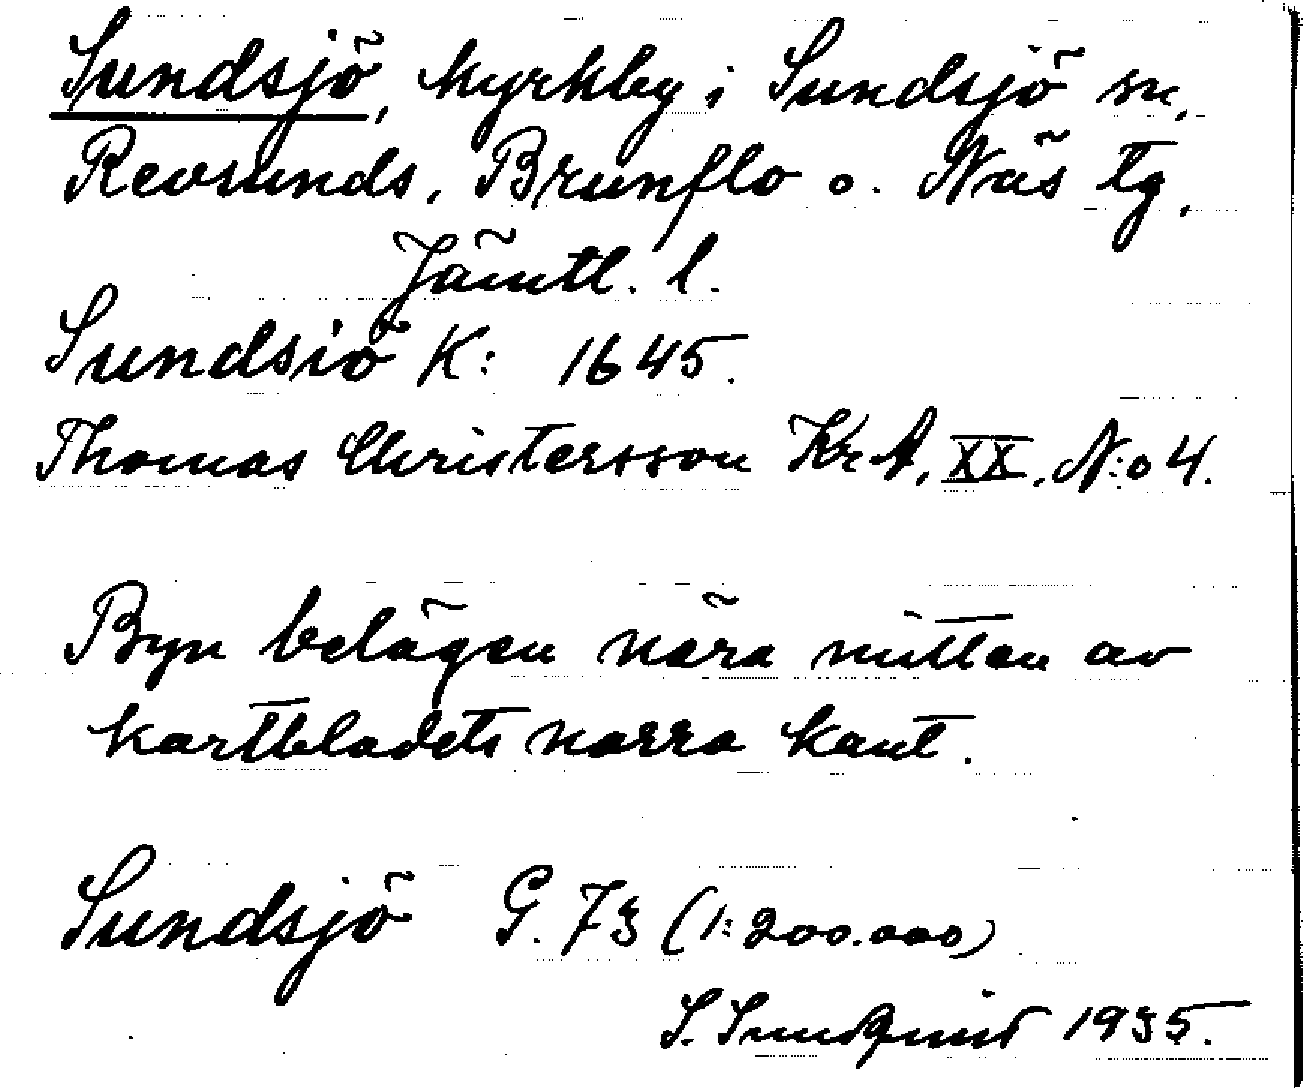 Sundsjö, kyrkby i Sundsjö sn,
Revsunds, Brunflo o. Näs tg,
Jämtl. l.
Sundsiö K: 1645.
Thomas Christersson Kr A, XX, N:o 4.
Byn belägen nära mitten av
kartbladets norra kant.
Sundsjö G. 73 (1:200.000)
S. Sundqvist 1935.